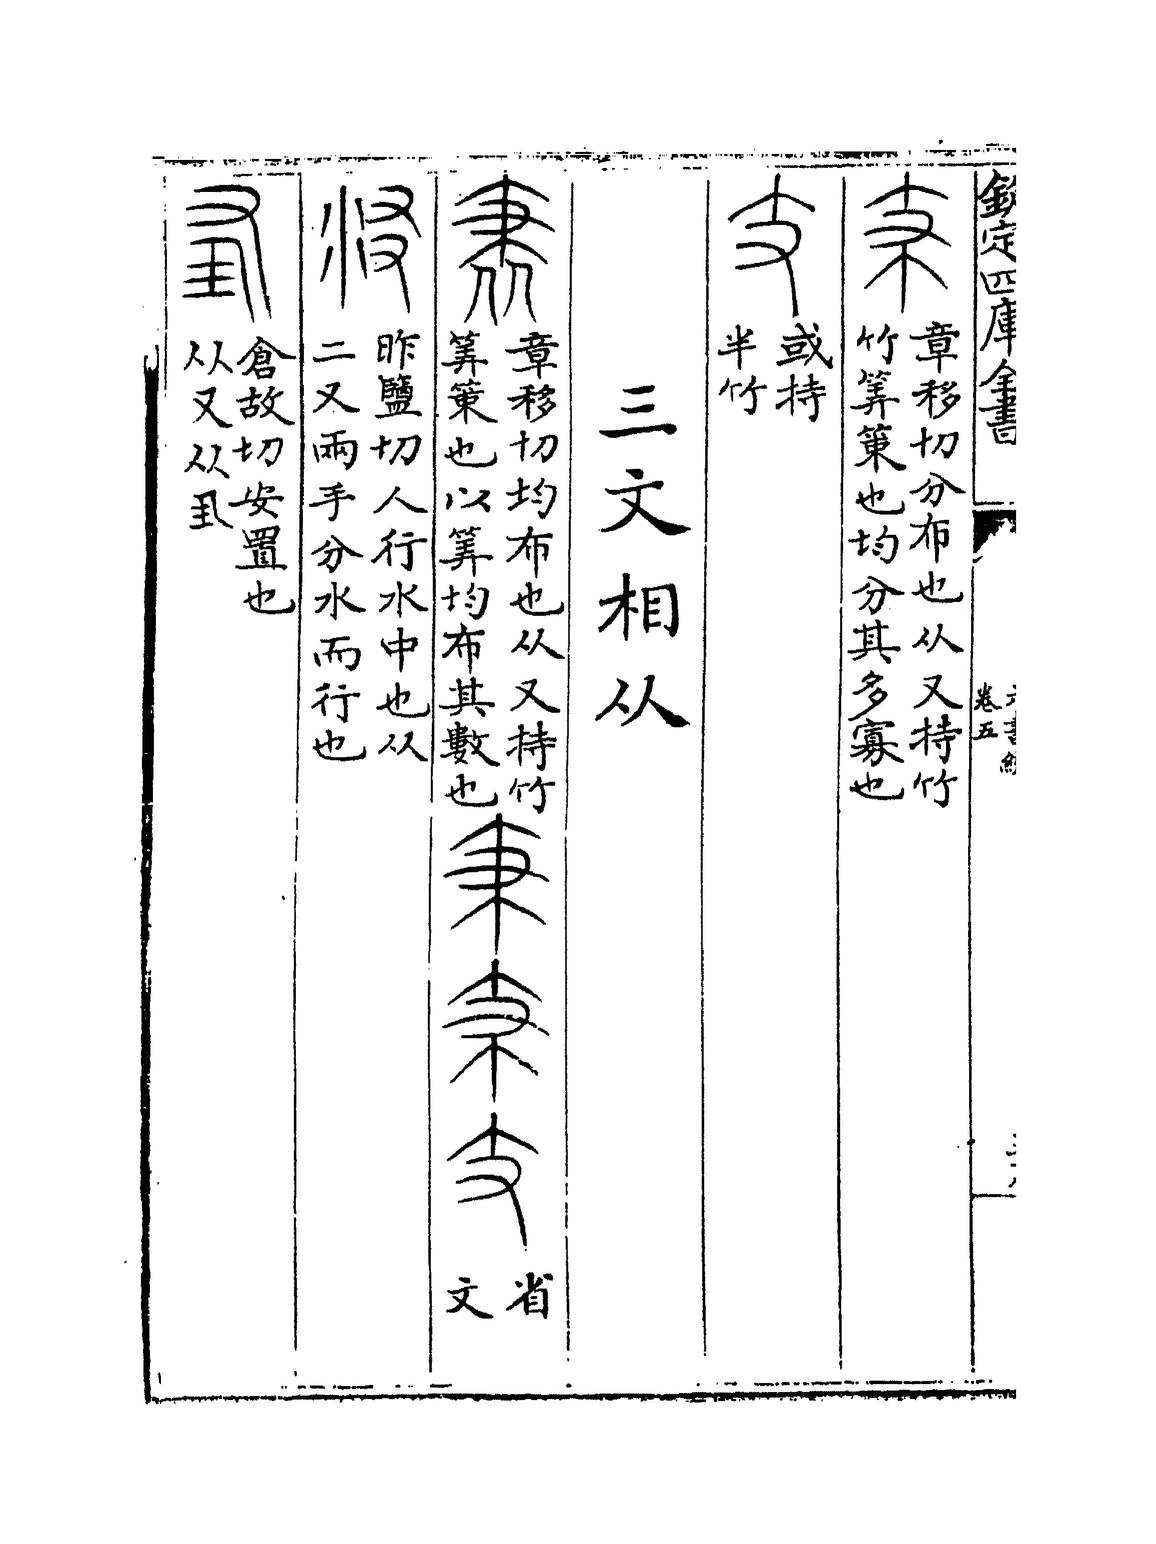 欽定四庫全書
卷五
章移切分布也从又持竹
竹筭策也均分其多寡也
或持
半竹
三文相从
章移切均布也从又持竹
筭策也以筭均布其數也
省
文
昨鹽切人行水中也从
二又兩手分水而行也
倉故切安置也
从又从㞷